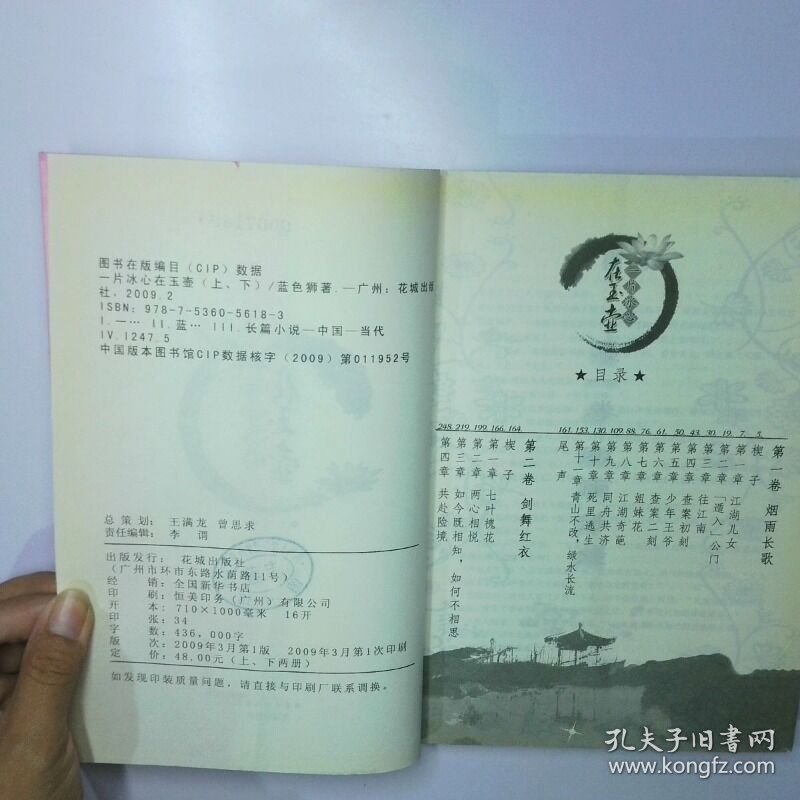 图书在版编目（CIP）数据
一片冰心在玉壶（上、下）/蓝色狮著.—广州：花城出版
社，2009.2
ISBN：978-7-5360-5618-3
I.一… II.蓝… III.长篇小说—中国—当代
IV.1247.5
中国版本图书馆CIP数据核字（2009）第011952号
总策划：王满龙 曾思求
责任编辑：李谓
出版发行：花城出版社
（广州市环市东路水荫路11号）
经销：全国新华书店
印刷：恒美印务（广州）有限公司
开本：710×1000毫米 16开
印张：34
字数：436,000字
版次：2009年3月第1版 2009年3月第1次印刷
定价：48.00元（上、下两册）
如发现印装质量问题，请直接与印刷厂联系调换。
一片冰心
在玉壶
★目录★
第一卷 烟雨长歌
楔子 5
第一章 江湖儿女 7
第二章 「遁入」公门 19
第三章 往江南 30
第四章 查案初刻 43
第五章 少年王爷 50
第六章 查案二刻 61
第七章 姐妹花 76
第八章 江湖奇葩 88
第九章 同舟共济 109
第十章 死里逃生 130
第十一章 青山不改，绿水长流 153
尾声 161
第二卷 剑舞红衣
楔子 164
第一章 七叶槐花 166
第二章 两心相悦 199
第三章 如今既相知，如何不相思 219
第四章 共赴险境 248
孔夫子旧书网
www.kongfz.com